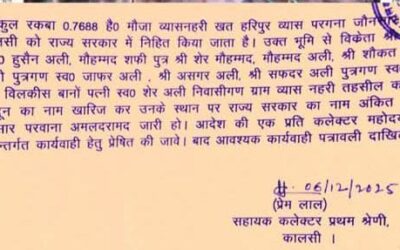 कुल रकबा 0.7688 है० मौजा व्यासनहरी खत हरिपुर व्यास परगना जौनसार
लसी को राज्य सरकार में निहित किया जाता है। उक्त भूमि से विक्रेता श्री
० हुसैन अली, मौहम्मद शफी पुत्र श्री शेर मौहम्मद, मौहम्मद अली, श्री शौकत
ी पुत्रगण स्व० जाफर अली , श्री असगर अली, श्री सफदर अली पुत्रगण स्व
विलकीस बानों पत्नी स्व० शेर अली निवासीगण ग्राम व्यास नहरी तहसील का
नून का नाम खारिज कर उनके स्थान पर राज्य सरकार का नाम अंकित
सार परवाना अमलदरामद जारी हो। आदेश की एक प्रति कलेक्टर महोदय
न्तर्गत कार्यवाही हेतु प्रेषित की जावे। बाद आवश्यक कार्यवाही पत्रावली दाखि
06/12/2025
(प्रेम लाल)
सहायक कलेक्टर प्रथम श्रेणी,
कालसी ।